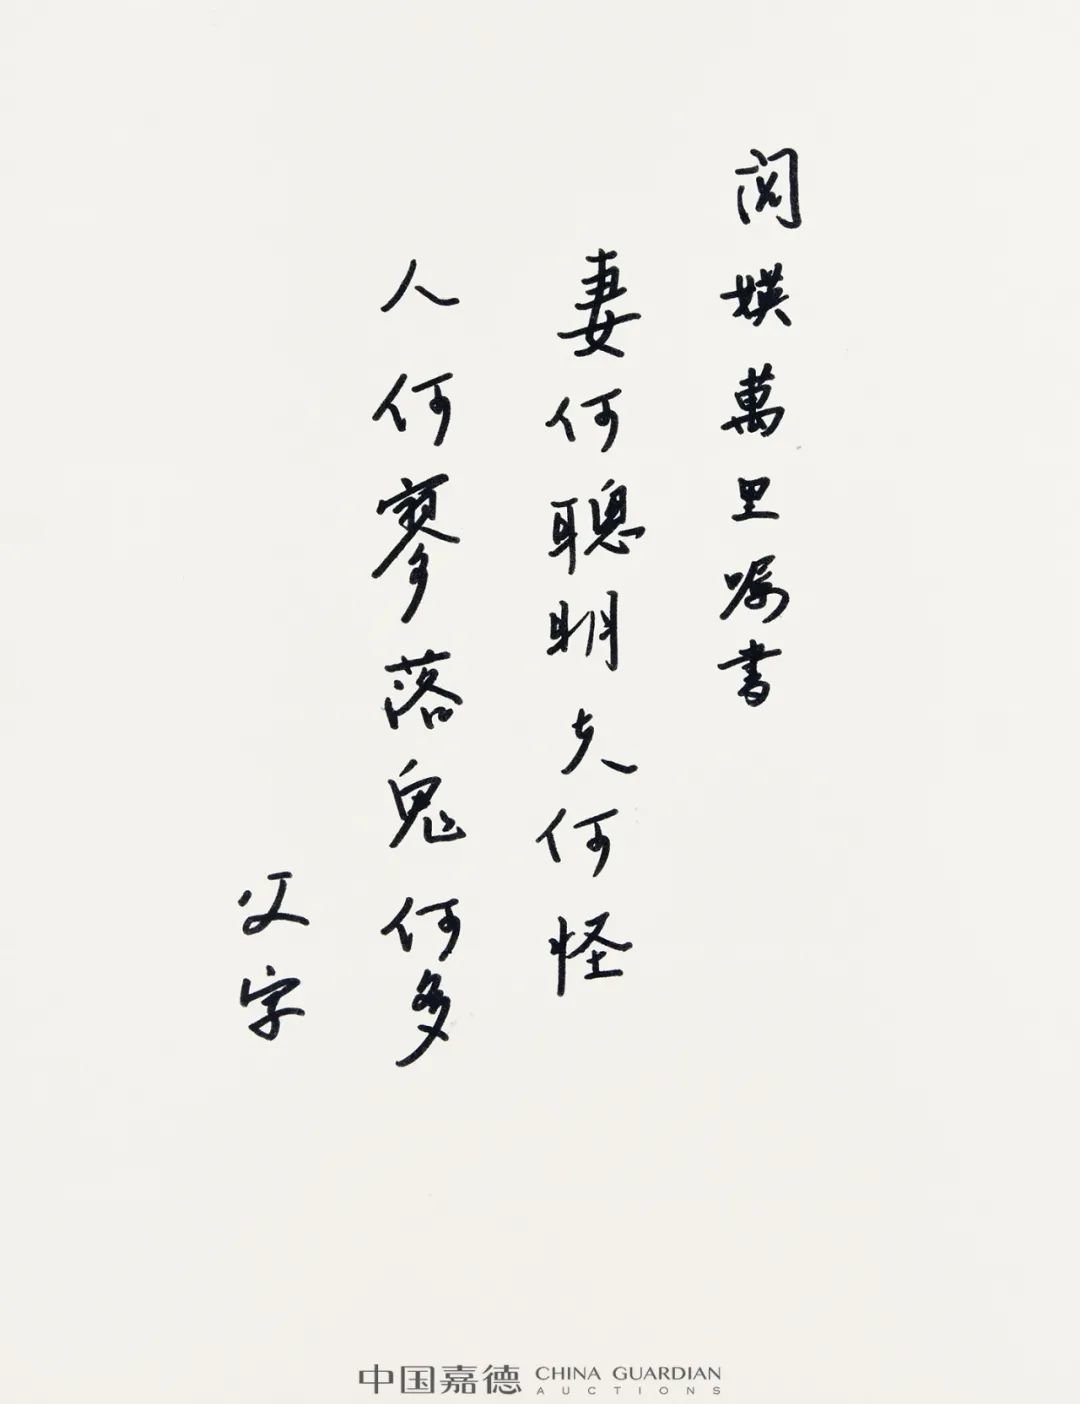 阅媖萬里嘱書
妻何聰明夫何怪
人何寥落鬼何多
文字
中国嘉德 CHINA GUARDIAN
AUCTIONS